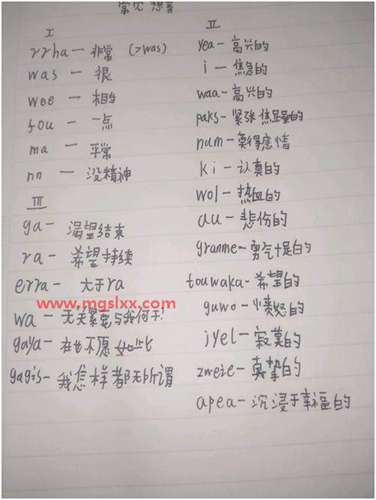 常见想音
I
rrha — 非常 (>was)
was — 很
wee — 相当
fou — 一点
ma — 平常
nn — 没精神
III
ga — 渴望结束
ra — 希望持续
erra — 大于ra
www.mgslxx.com
wa — 无关紧要与我何干!
gaya — 在也不愿如此
gagis — 我怎样都无所谓
II
yea — 高兴的
i — 焦急的
waa — 高兴的
paks — 紧张焦虑的
num — 莫得感情
ki — 认真的
wol — 热血的
au — 悲伤的
granme — 勇气十足的
touwaka — 希望的
guwo — 愤怒的
iyel — 寂寞的
zweie — 真挚的
apea — 沉浸于幸福的